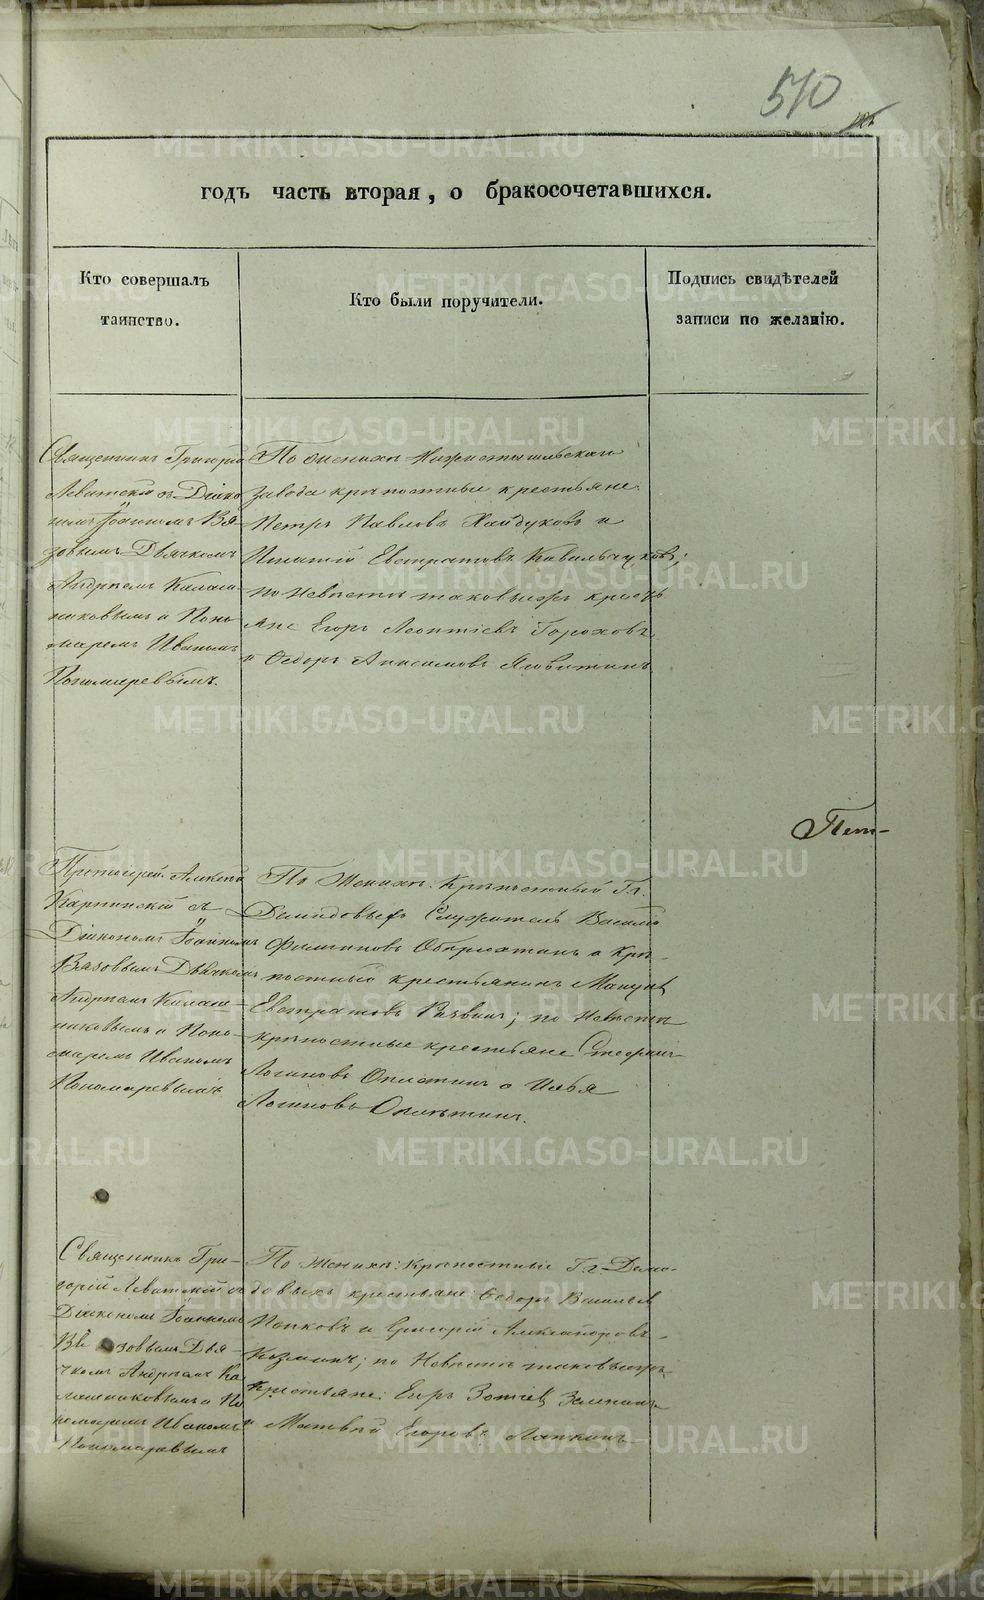 510
годъ часть вторая, о бракосочетавшихся.
Кто совершалъ
таинство.
Кто были поручители.
Подпись свидѣтелей
записи по желанію.
Священникъ Григорій
Левитскій съ Діако
номъ Іоанномъ Вя
зовымъ Дьячкомъ
Андреемъ Калаш
никовымъ и Поно
маремъ Иваномъ
Пономаревымъ.
По женихѣ Нижнетагильскаго
завода крѣпостные крестьяне
Петръ Павловъ Хайдуковъ и
Игнатій Евстратовъ
по Невѣстѣ таковыежъ кресть
яне Егоръ Леонтіевъ Гороховъ
и Ѳедоръ Анисимовъ
Пет-
Протоіерей Алексѣй
Карпинскій съ
Діакономъ Іоанномъ
Вязовымъ Дьячкомъ
Андреемъ Калаш
никовымъ и Поно-
маремъ Иваномъ
Пономаревымъ
По Женихѣ: Крѣпостный Гг.
Демидовыхъ Служитель Василій
Филиповъ и Крѣ-
постный крестьянинъ
Евстратовъ по Невѣстѣ
крѣпостные крестьяне Стефанъ
Логиновъ и Илья
Логиновъ
Священникъ Гри-
горій Левитскій съ
Діакономъ Іоанномъ
Вязовымъ Дья-
чкомъ Андреемъ Ка
лашниковымъ и По
номаремъ Иваномъ
Пономаревымъ
По Женихѣ: Крѣпостные Гг Деми-
довыхъ крестьяне: Ѳедоръ Васильевъ
Попковъ и Григорій Александровъ
Козминъ; по Невѣстѣ таковыежъ
Крестьяне: Егоръ Зотіевъ
и Матвѣй Егоровъ Лапкинъ
METRIKI.GASO-URAL.RU